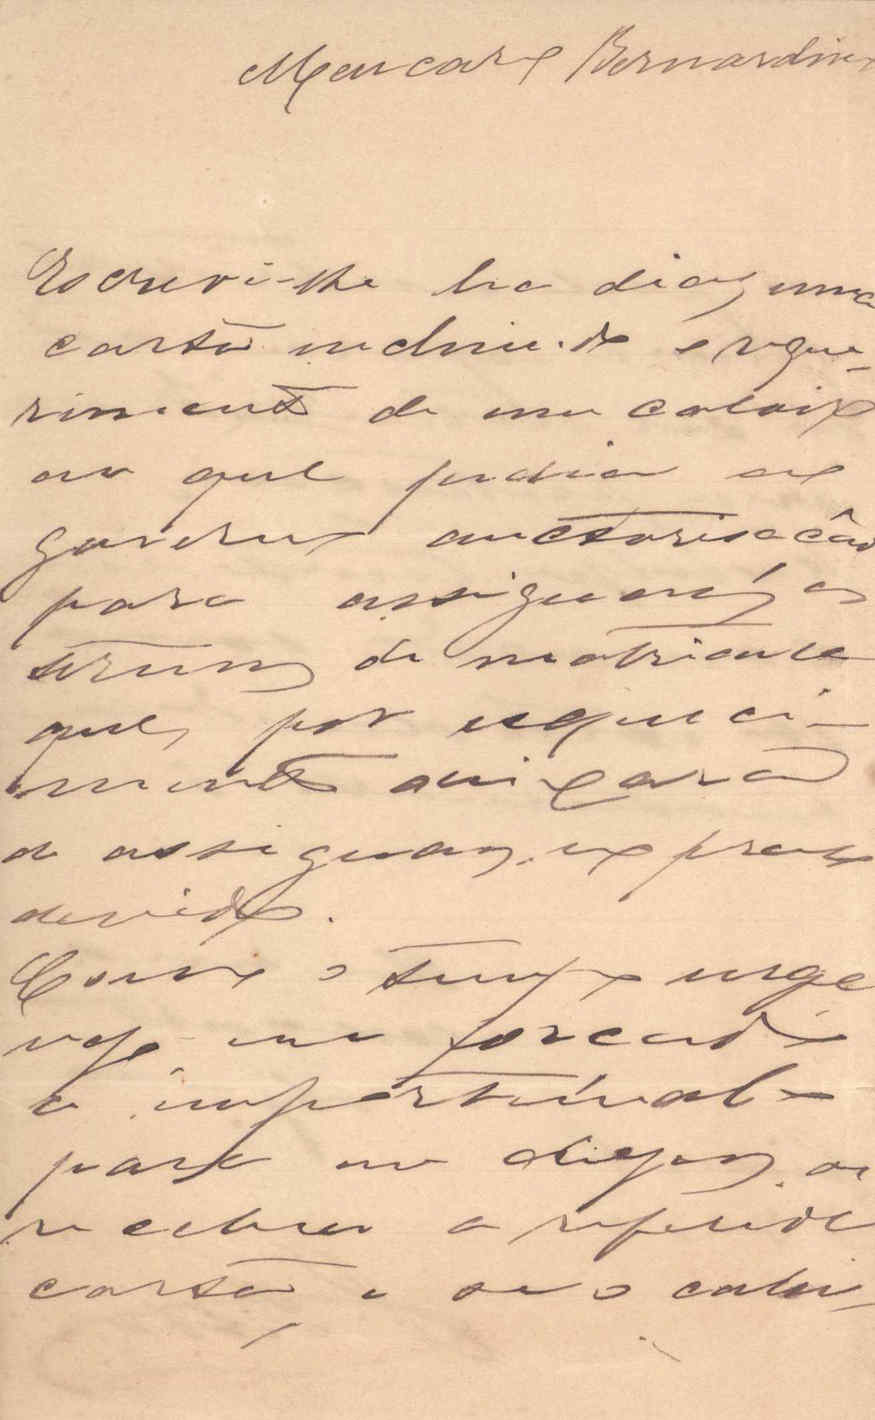 Meu caro Bernardino
Escrevi-lhe ha dias uma
carta incluindo o reque-
rimento de um caloiro
em que pedia ao
governo auctorisação
para assignar os
termos de matricula
que, por esqueci-
mento deixara
de assignar no praso
devido.
Como o tempo urge
vejo-me forçado
a importunal-o
para me dizer se
recebeu a referida
carta e se o caloi-